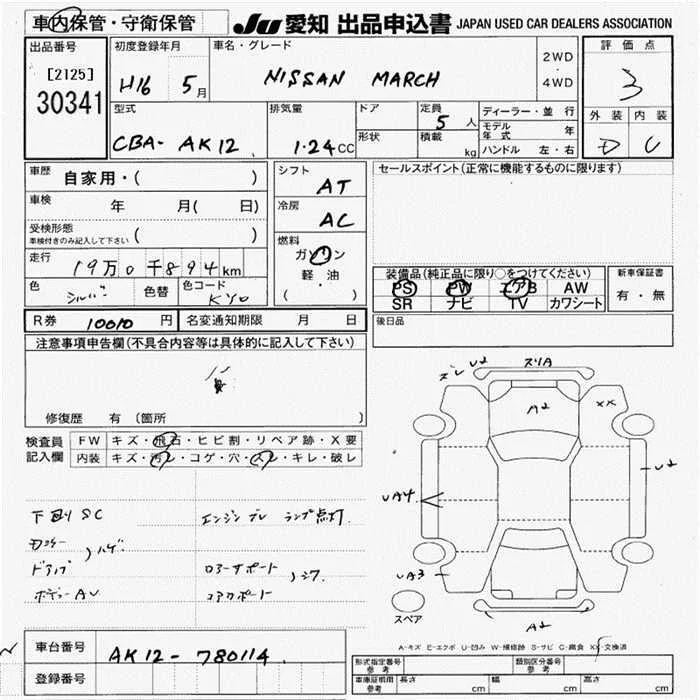 車内保管・守衛保管
JU 愛知 出品申込書 JAPAN USED CAR DEALERS ASSOCIATION
出品番号
[2125]
30341
初度登録年月
H16 5月
車名・グレード
NISSAN MARCH
2WD
・
4WD
評価点
3
外装 内装
D C
型式
CBA- AK12
排気量
1.24CC
ドア
形状
定員 5人
積載 kg
ディーラー・並行
モデル年式 年
ハンドル 左・右
車歴 自家用・( )
車検 年 月( 日)
受検形態
車検付きのみ記入して下さい ( )
走行 19万0千894km
色 シルバー 色替 色コード KY0
シフト AT
冷房 AC
燃料
ガソリン
軽・油
( )
セールスポイント(正常に機能するものに限ります)
装備品(純正品に限り○をつけてください)
PS PW エアB AW
SR ナビ TV カワシート
新車保証書
有・無
R券 10010円 名変通知期限 月 日
後日品
注意事項申告欄(不具合内容等は具体的に記入して下さい)
修復歴 有 〔箇所 〕
検査員記入欄
FW キズ・飛石・ヒビ割・リペア跡・X要
内装 キズ・汚レ・コゲ・穴・スレ・キレ・破レ
下回りSC
エンジンブレ ランプ点灯
ハゲ
ドアノブ
ボデーAV
ロアーサポート
コアサポート
U2
スリA
A2
XX
U2
UA4
UA3
A2
スペア
A-キズ E-エクボ U-凹み W-補修跡 S-サビ C-腐食 X-交換済
車台番号 AK12-780114
登録番号
形式指定番号 参考
類別区分番号 参考
車庫証明用 参考 長さ cm 幅 cm 高さ cm